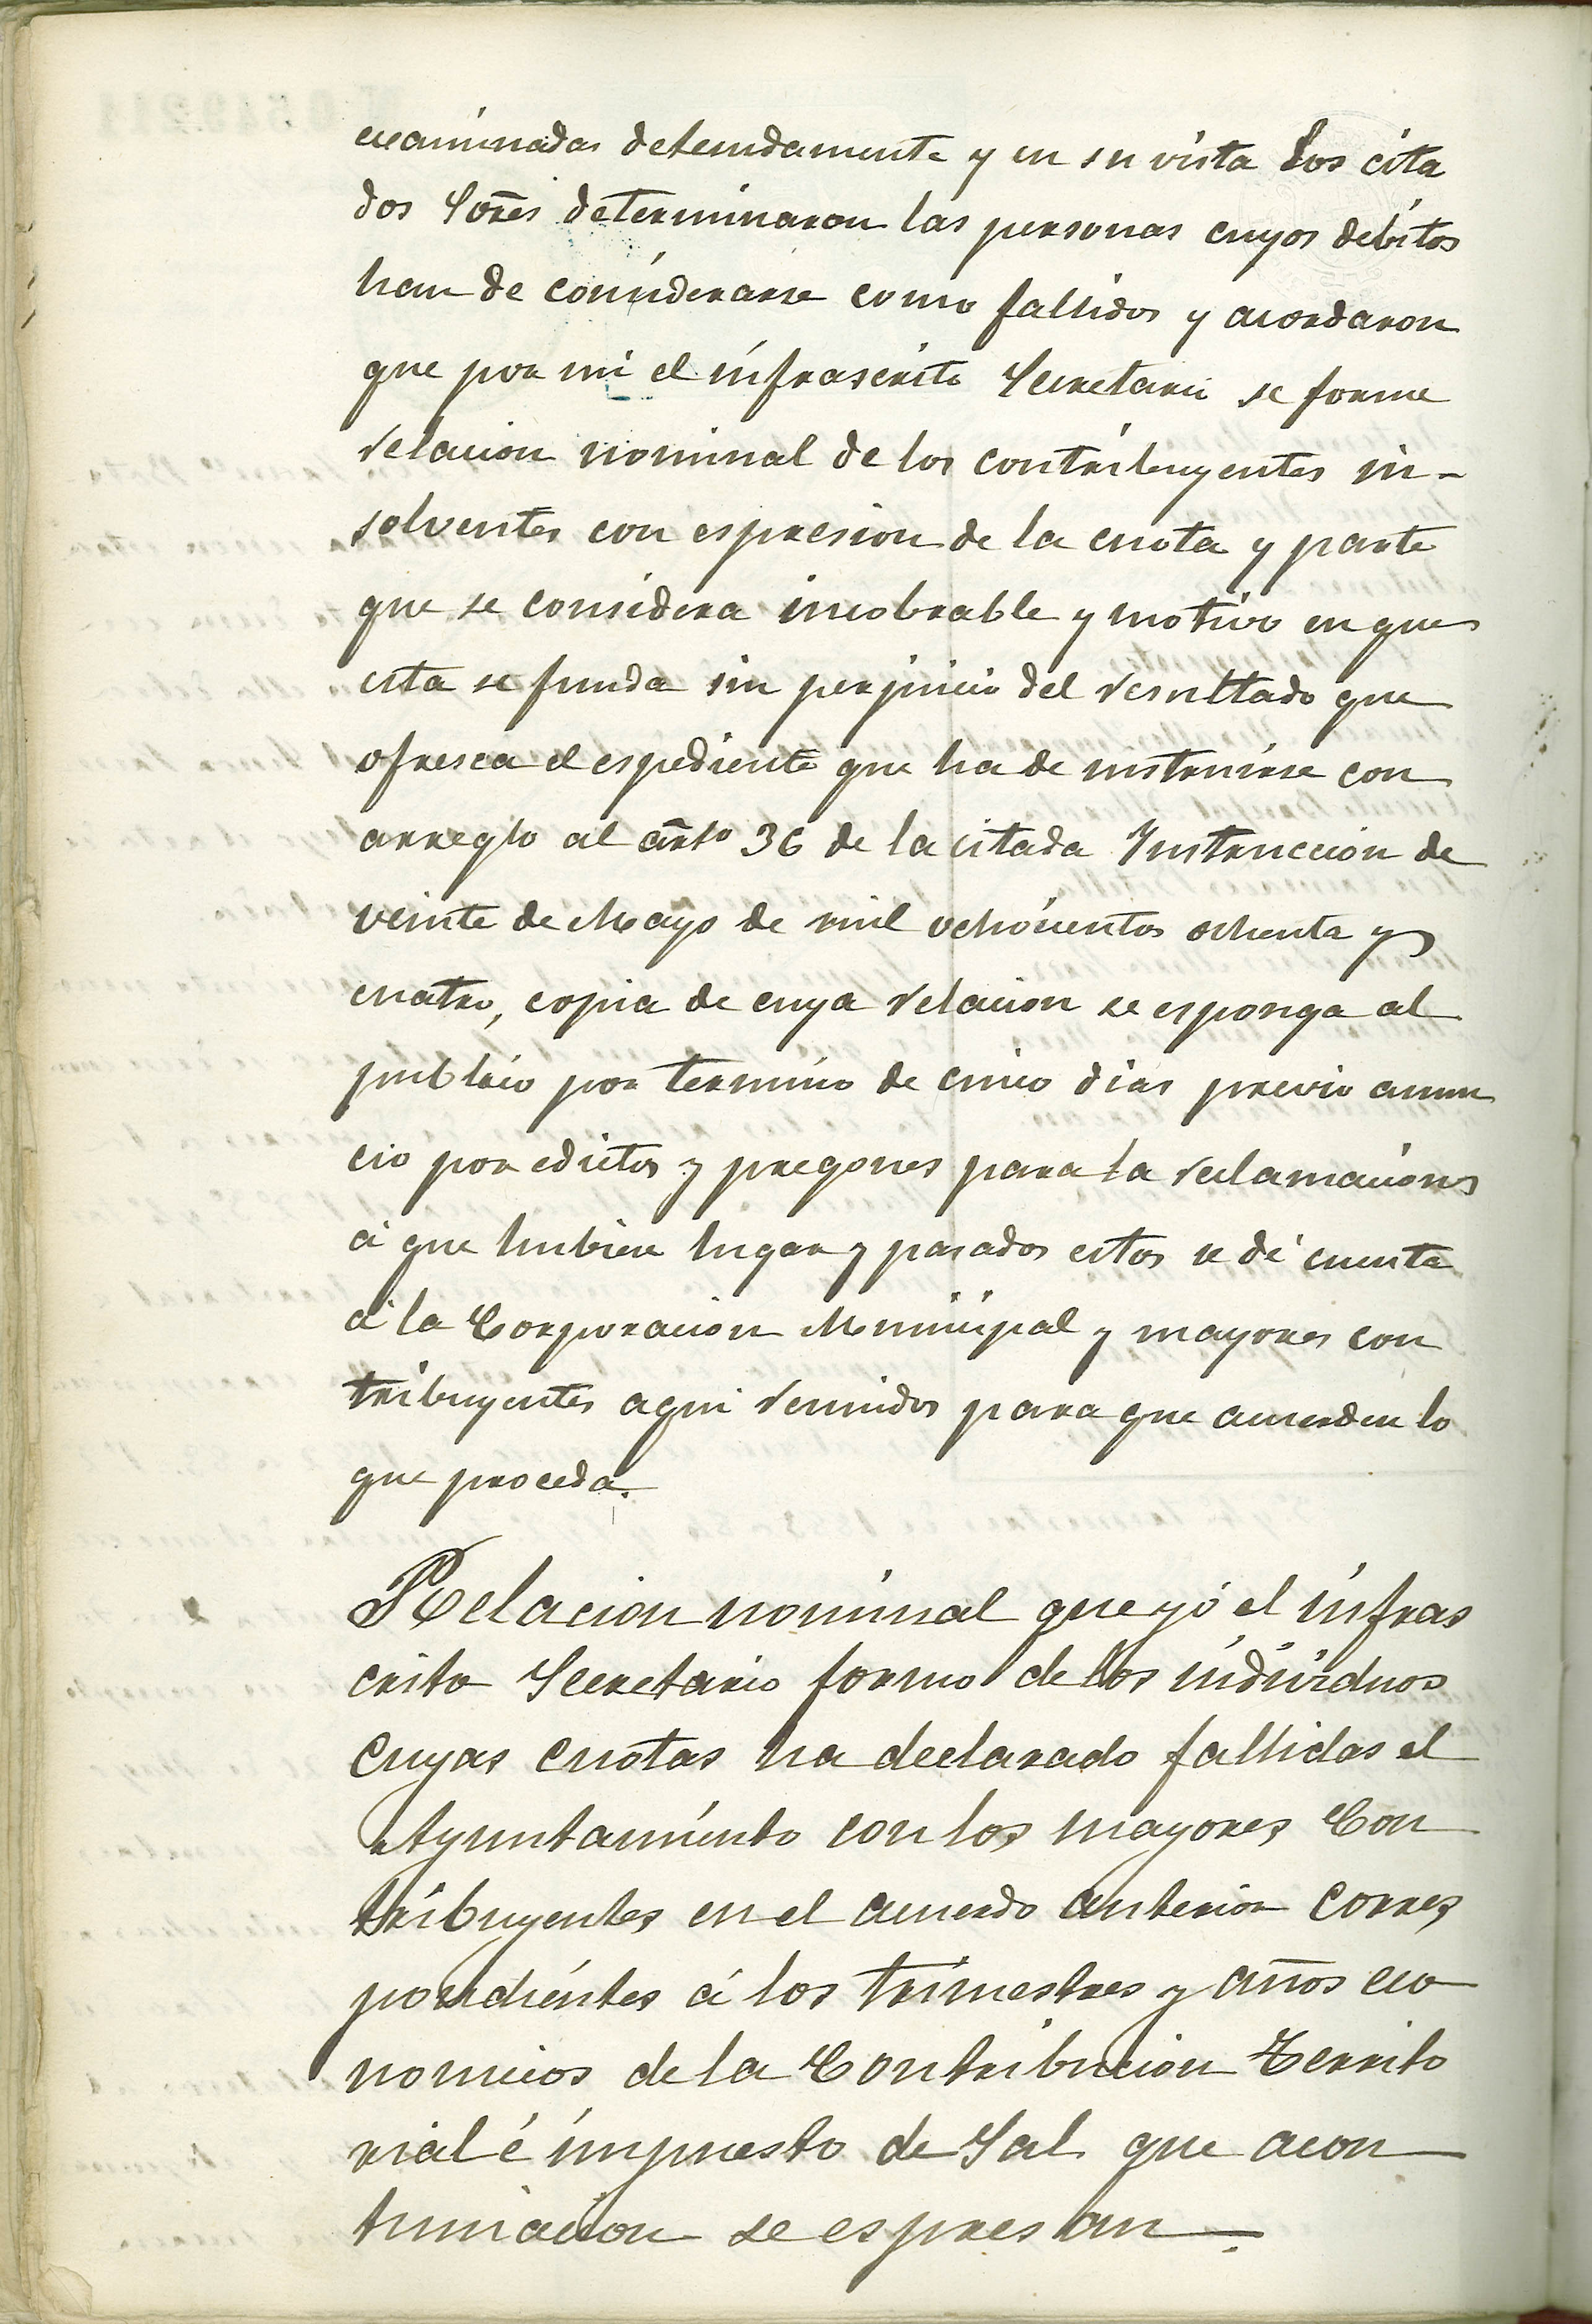 examinadas detenidamente y en su vista los cita
dos Sores determinaron las personas cuyos debitos
han de considerarse como fallidos y acordaron
que por mi el infrascrito Secretario se forme
relacion nominal de los contribuyentes in-
solventes con espresion de la cuota y parte
que se considera incobrable y motivo en que
esta se funda sin perjuicio del resultado que
ofresca el espediente que ha de instruirse con
arreglo al arto 36 de la citada Instruccion de
veinte de Mayo de mil ochocientos ochenta y
cuatro, copia de cuya relacion se esponga al
publico por termino de cinco dias previo anun
cio por edictos y pregones para la reclamaciones
á que hubiere lugar y pasados estos se dé cuenta
á la Corporacion Municipal y mayores con
tribuyentes aqui reunidos para que acuerden lo
que proceda.
Relacion nominal que yó el infras
crito Secretario formo de los individuos
cuyas cuotas ha declarado fallidas el
Ayuntamiento con los mayores Con
tribuyentes en el acuerdo anterior corres
pondientes á los trimestres y años eco
nomicos de la Contribucion Territo
rial é impuesto de Sal que acon
tinuacion se espresan.